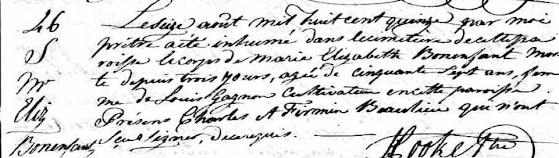 46
S
Mie
Eliz
Bonenfant
Le seize août mil huit cent quinze par moi
prêtre a été inhumé dans le cimetiere de cette pa
roisse le corps de Marie Elizabeth Bonenfant mor
te depuis trois jours, agée de cinquante Sept ans, fem
me de Louis Gagnon Cultivateur en cette paroisse.
Présens Charles & Firmin Beaulieu qui n'ont
sçu signer, de ce requis.
Hooke Ptre